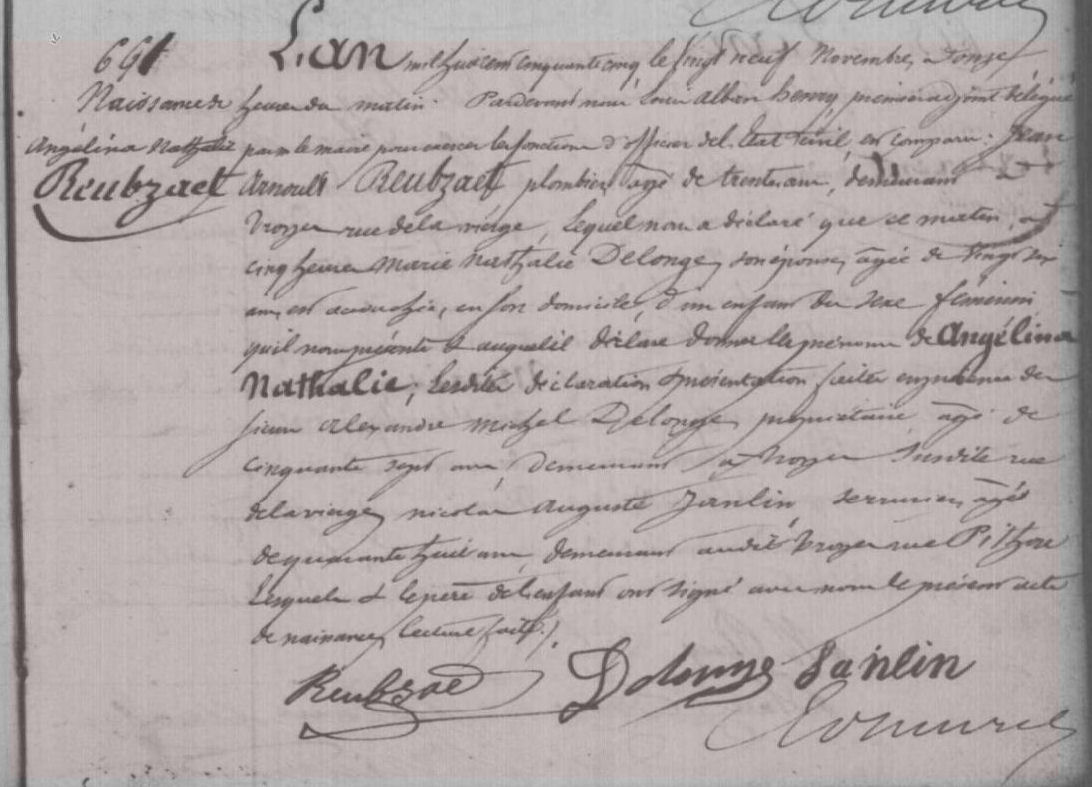 691
Naissance de
Angélina Nathalie
Reubzaet
L'an mil huit cent cinquante cinq le vingt neuf Novembre, à onze
heures du matin. Pardevant nous Louis Alban henry, premier adjoint délégué
par m. le maire pour exercer les fonctions d'officier de l'Etat Civil, est comparu : Jean
Arnoult Reubzaet plombier, agé de trente ans, demeurant à
troyes rue de la vierge, Lequel nous a déclaré que ce matin, à
cinq heures Marie Nathalie Delonge, son épouse, agée de vingt six
ans, est accouchée, en son domicile, d'un enfant du sexe féminin
qu'il nous présente & auquel il déclare donner les prénoms de Angélina
Nathalie; Lesdites déclaration & présentation faites en présence des
sieurs Alexandre Michel Delonge, propriétaire, agé de
cinquante sept ans demeurant à troyes susdite rue
de la vierge, nicolas Auguste Janlin serrurier, agé
de quarante huit ans, demeurant audit troyes rue Pithou
Lesquels & le père de l'enfant ont signé avec nous le présent acte
de naissance, lecture faite./.
Reubzaet Delonge Janlin